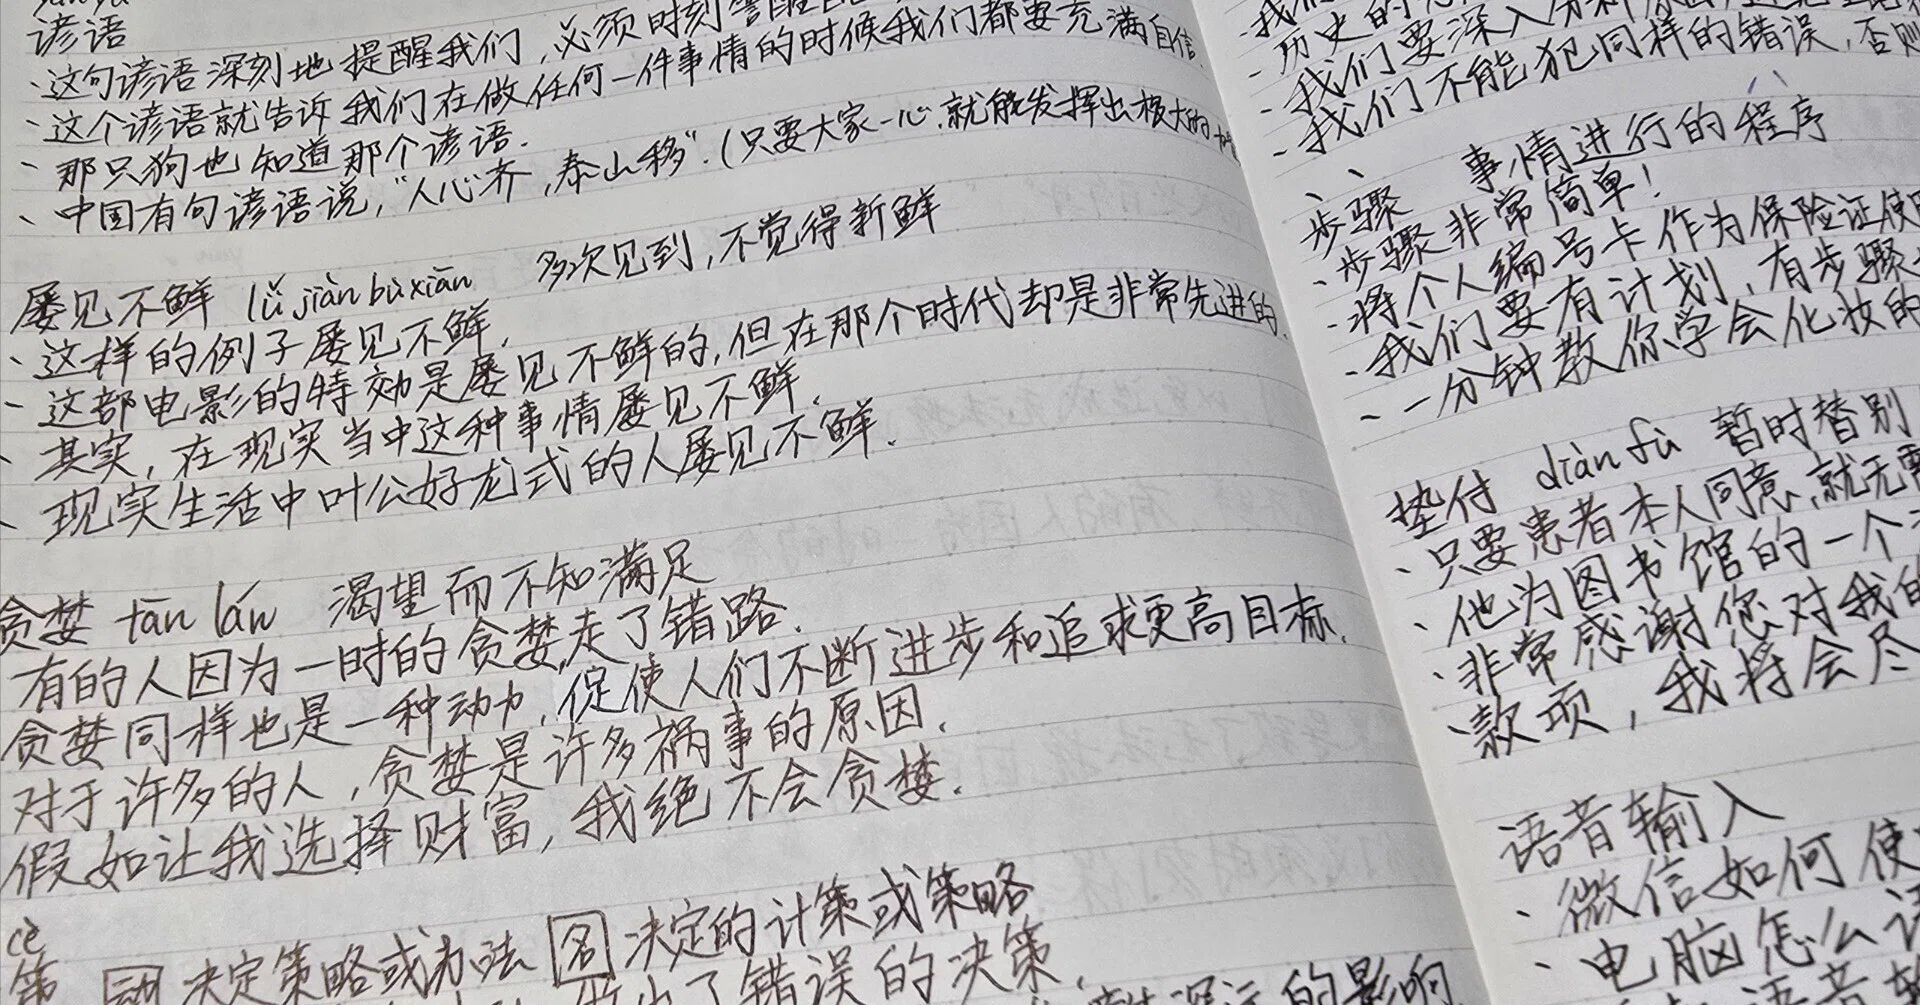 谚语
·这句谚语深刻地提醒我们,必须时刻警醒
·这个谚语就告诉我们在做任何一件事情的时候我们都要充满自信.
、那只狗也知道那个谚语.
、中国有句谚语说,“人心齐,泰山移”.(只要大家一心.就能发挥出极大的
屡见不鲜 lǚ jiàn bù xiān 多次见到,不觉得新鲜
·这样的例子屡见不鲜.
、这部电影的特效是屡见不鲜的,但在那个时代却是非常先进的.
、其实,在现实当中这种事情屡见不鲜.
、现实生活中叶公好龙式的人屡见不鲜.
贪婪 tān lán 渴望而不知满足
有的人因为一时的贪婪,走了错路.
贪婪同样也是一种动力,促使人们不断进步和追求更高目标.
对于许多的人,贪婪是许多祸事的原因.
假如让我选择财富,我绝不会贪婪.
cè
策 动 决定策略或办法 名 决定的计策或策略
出了错误的决策.
的影响
·我们
·历史的
·我们要深入分析
·我们不能犯同样的错误,否则
步骤 事情进行的程序
·步骤非常简单!
·将个人编号卡作为保险证使用
·我们要有计划,有步骤
、一分钟教你学会化妆的
垫付 diàn fù 暂时替别
·只要患者本人同意,就无需
、他为图书馆的一个
·非常感谢您对我的
款项,我将会尽
语音输入
、微信如何使
、电脑怎么语
语音输